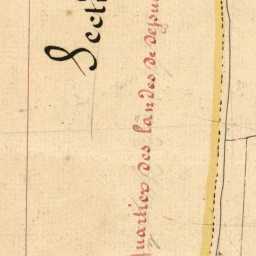 Secti
Quartier des landes de